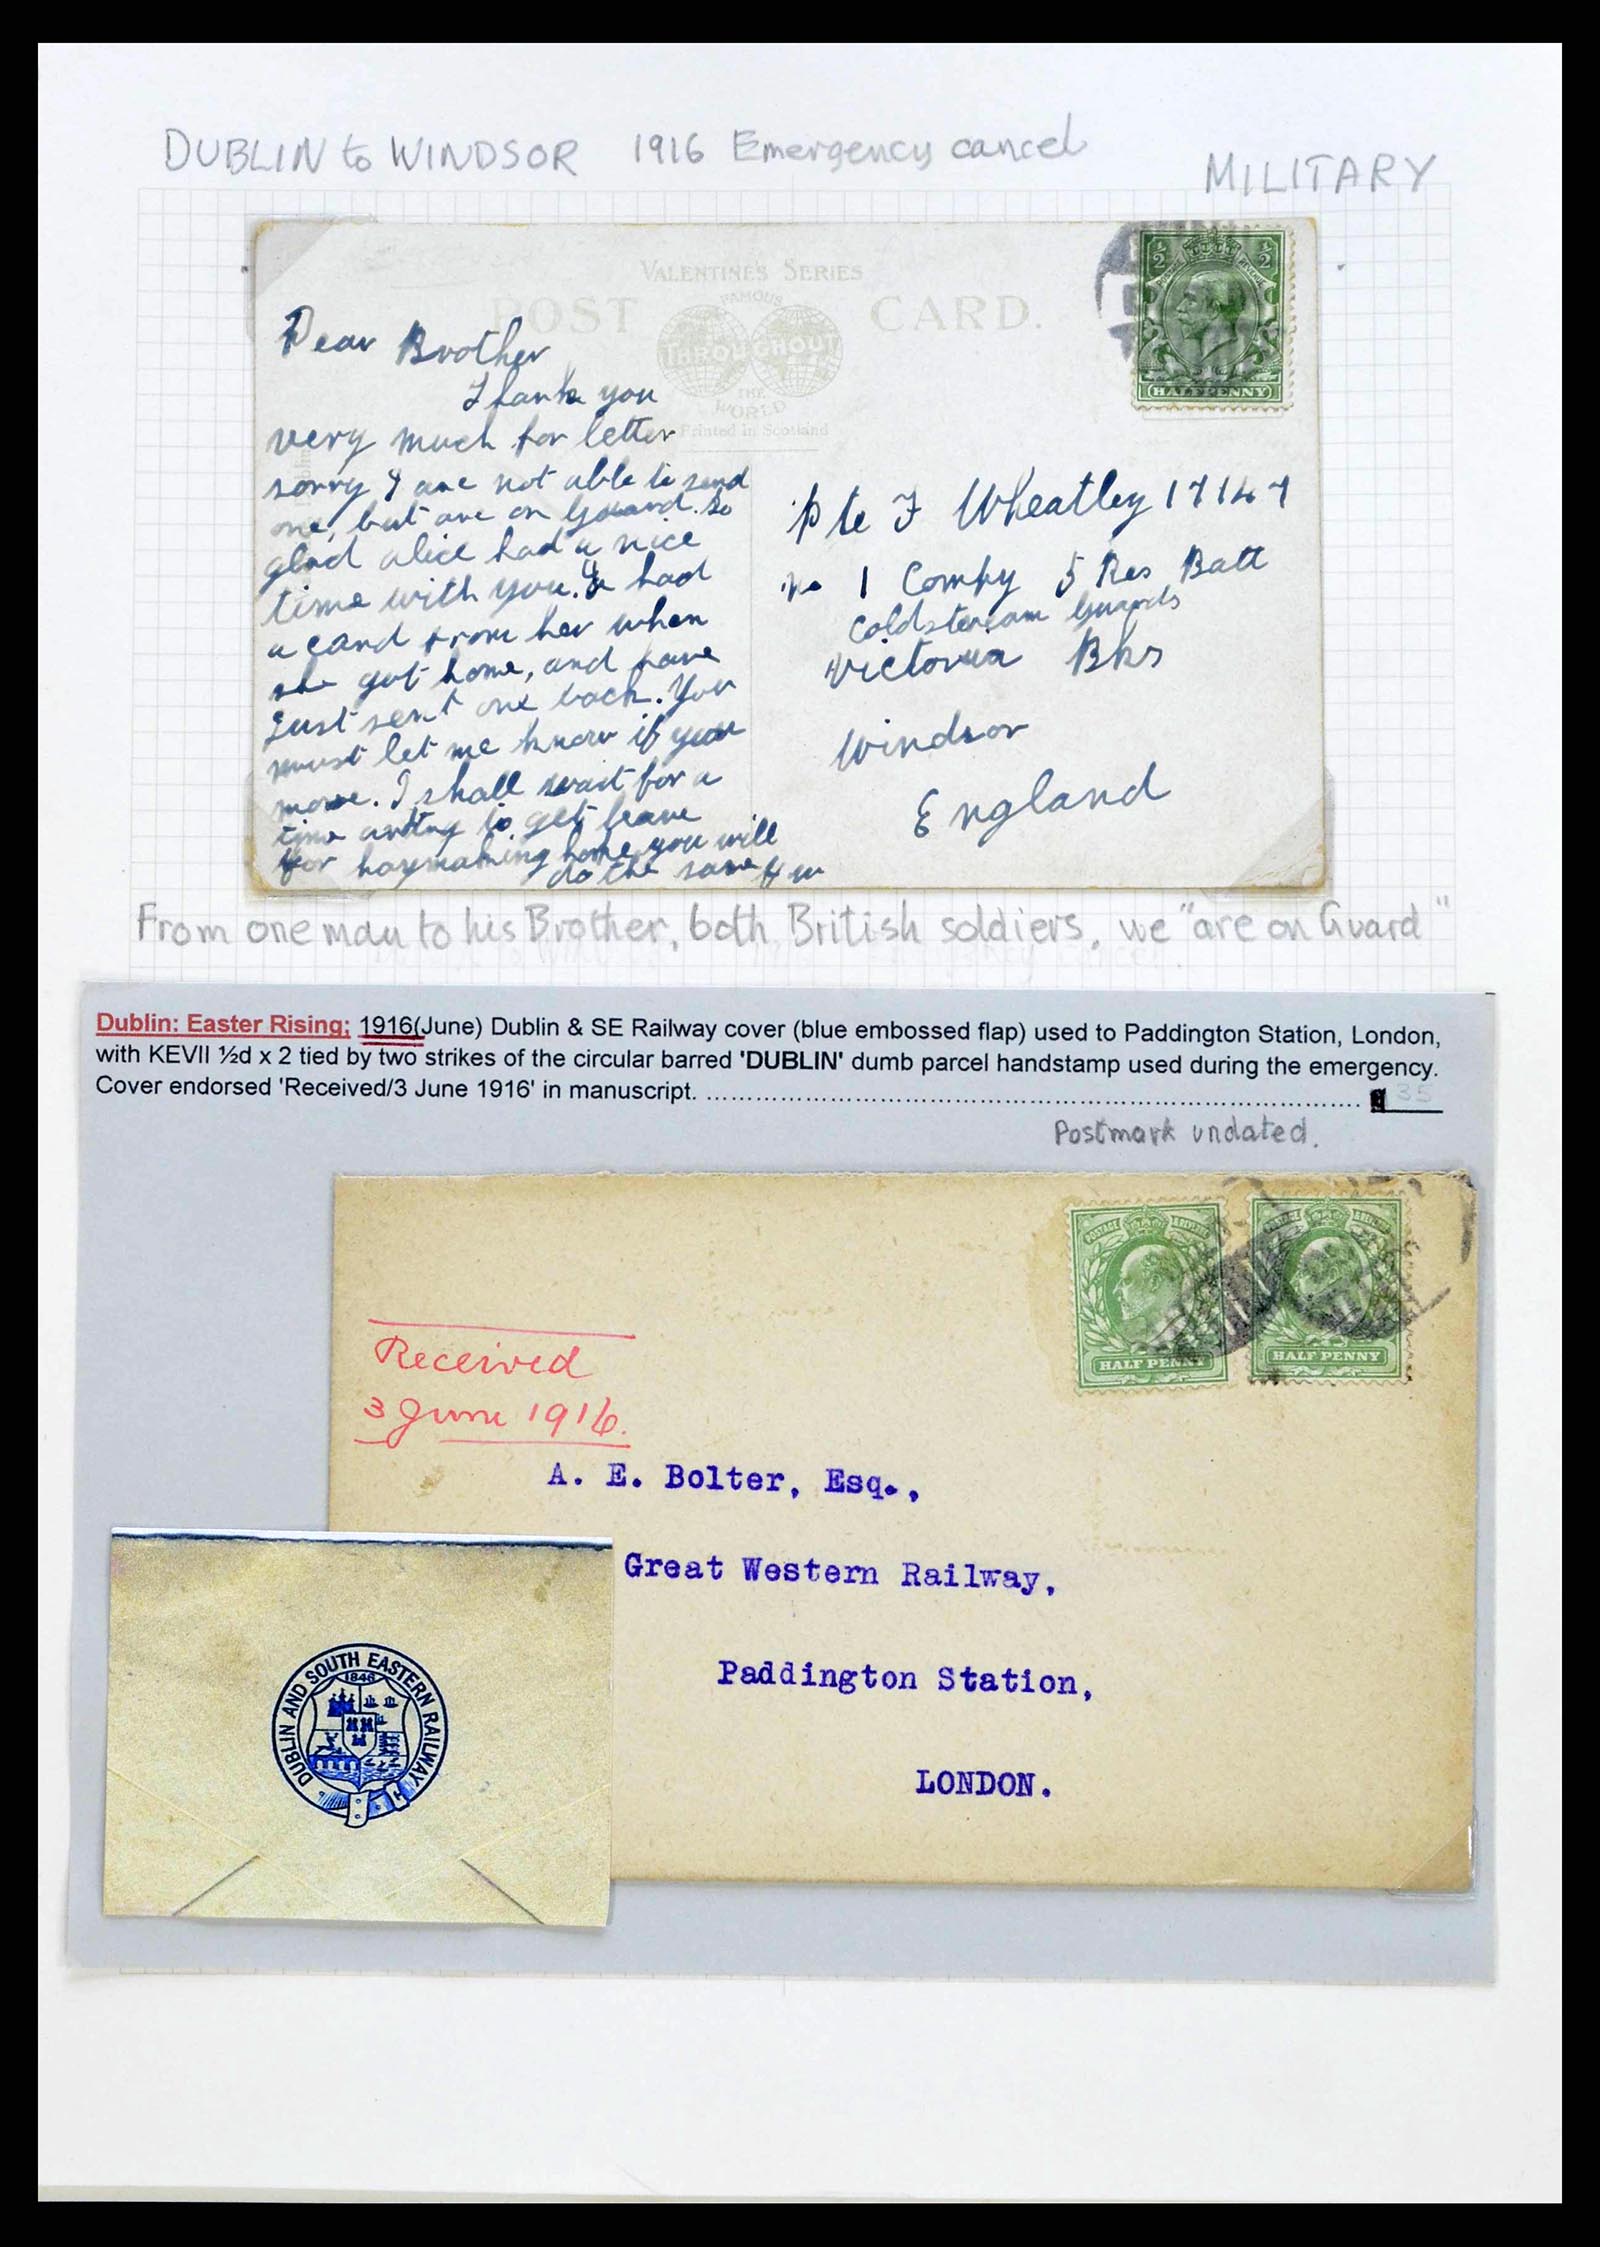 DUBLIN to WINDSOR 1916 Emergency cancel
MILITARY
VALENTINE'S SERIES
POST CARD.
FAMOUS
THROUGHOUT
THE
WORLD
Printed in Scotland
HALFPENNY
Dear Brother
Thank you
very much for letter
sorry I are not able to send
one, but are on Guard. So
glad alice had a nice
time with you. I had
a card from her when
she got home, and have
just sent one back. You
must let me know if you
move. I shall wait for a
time and try to get leave
for haymaking home you will
do the same
Pte F Wheatley 17147
No 1 Compy 5 Res Batt
Coldstream Guards
Victoria Bks
Windsor
England
From one man to his Brother, both British soldiers, we "are on Guard"
Dublin: Easter Rising; 1916(June) Dublin & SE Railway cover (blue embossed flap) used to Paddington Station, London,
with KEVII ½d x 2 tied by two strikes of the circular barred 'DUBLIN' dumb parcel handstamp used during the emergency.
Cover endorsed 'Received/3 June 1916' in manuscript. 35
Postmark undated.
POSTAGE REVENUE
HALF PENNY
HALF PENNY
Received
3 June 1916.
A. E. Bolter, Esq.,
Great Western Railway,
Paddington Station,
LONDON.
DUBLIN AND SOUTH EASTERN RAILWAY
1846